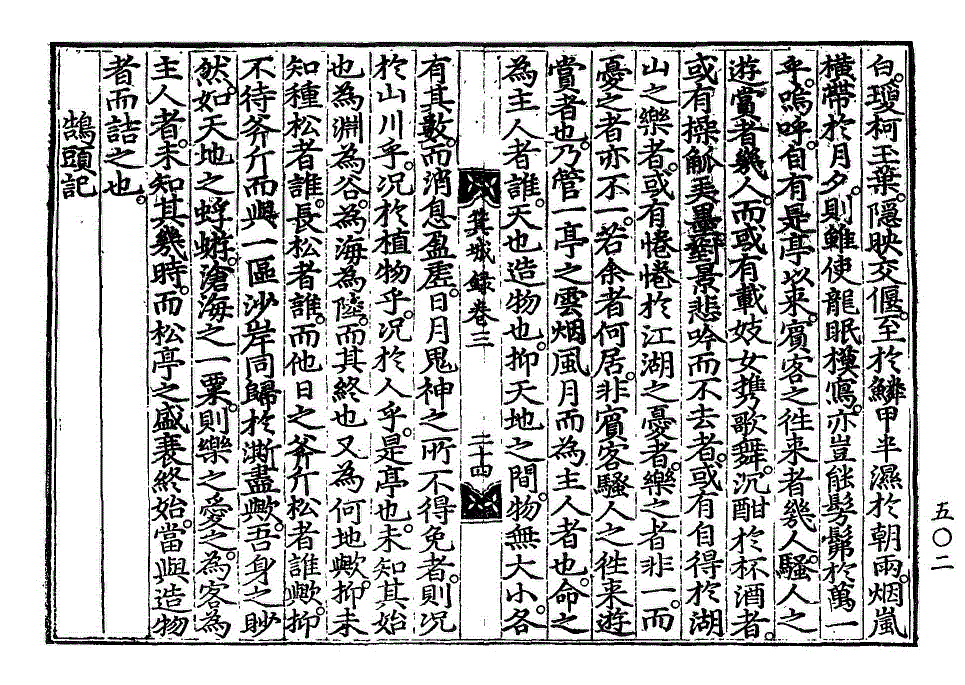 白。瓊柯玉葉。隱映交偃。至於鱗甲半濕於朝雨。烟嵐
橫帶於月夕。則雖使龍眠摸寫。亦豈能髣髴於萬一
乎。嗚呼。自有是亭以來。賓客之往來者幾人。騷人之
遊賞者幾人。而或有載妓女携歌舞。沉酣於杯酒者。
或有操觚吮墨對景悲吟而不去者。或有自得於湖
山之樂者。或有惓惓於江湖之憂者。樂之者非一。而
憂之者亦不一。若余者何居。非賓客騷人之徃來遊
賞者也。乃管一亭之雲烟風月而為主人者也。命之
為主人者誰。天也造物也。抑天地之間。物無大小。各
箕城錄卷三 二十四
有其數。而消息盈虛。日月鬼神之所不得免者。則况
於山川乎。况於植物乎。况於人乎。是亭也。未知其始
也為淵為谷。為海為陸。而其終也又為何地歟。抑未
知種松者誰。長松者誰。而他日之斧斤松者誰歟。抑
不待斧斤而與一區沙岸同歸於澌盡歟。吾身之眇
然。如天地之蜉蝣。滄海之一粟。則樂之愛之。為客為
主人者。未知其幾時。而松亭之盛衰終始。當與造物
者而詰之也。
鵠頭記
五〇二